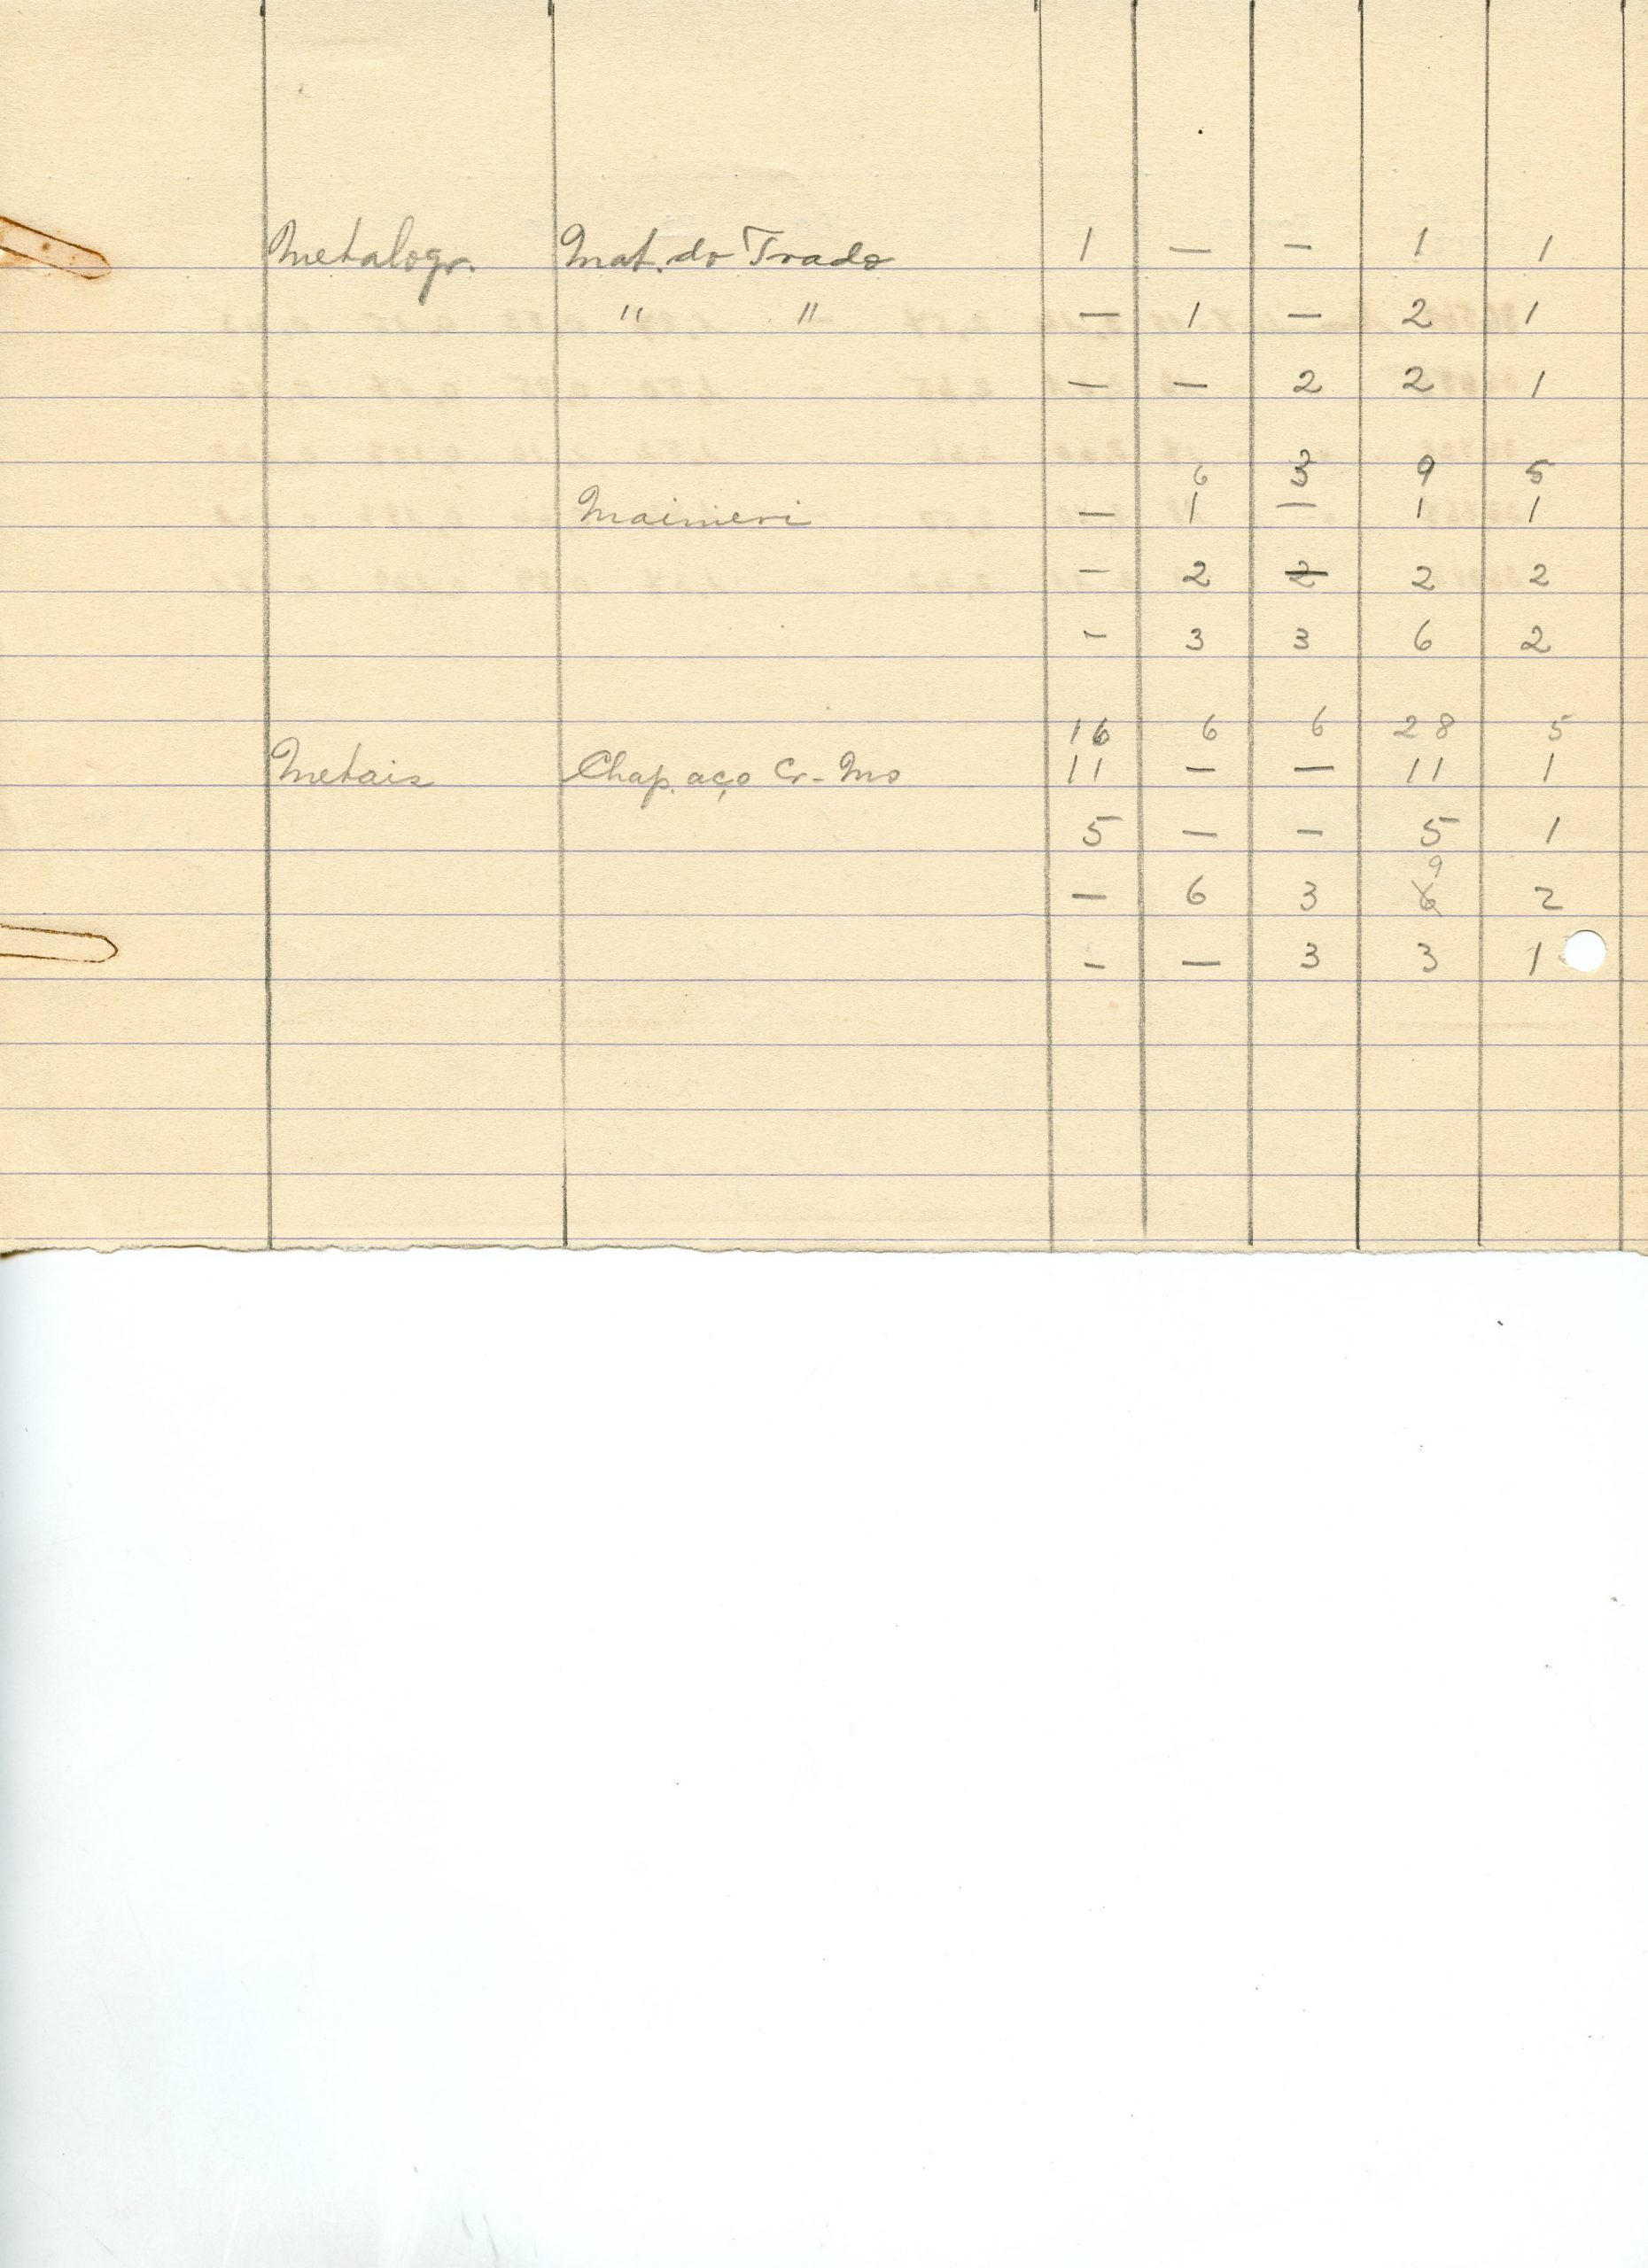 Metalogr. Mat. do Trado 1 — — 1 1
" " — 1 — 2 1
— — 2 2 1
6 3 9 5
Maineri — 1 — 1 1
— 2 2 2 2
— 3 3 6 2
16 6 6 28 5
Metais Chap. aço Cr-Mo 11 — — 11 1
5 — — 5 1
9
— 6 3 6 2
— — 3 3 1